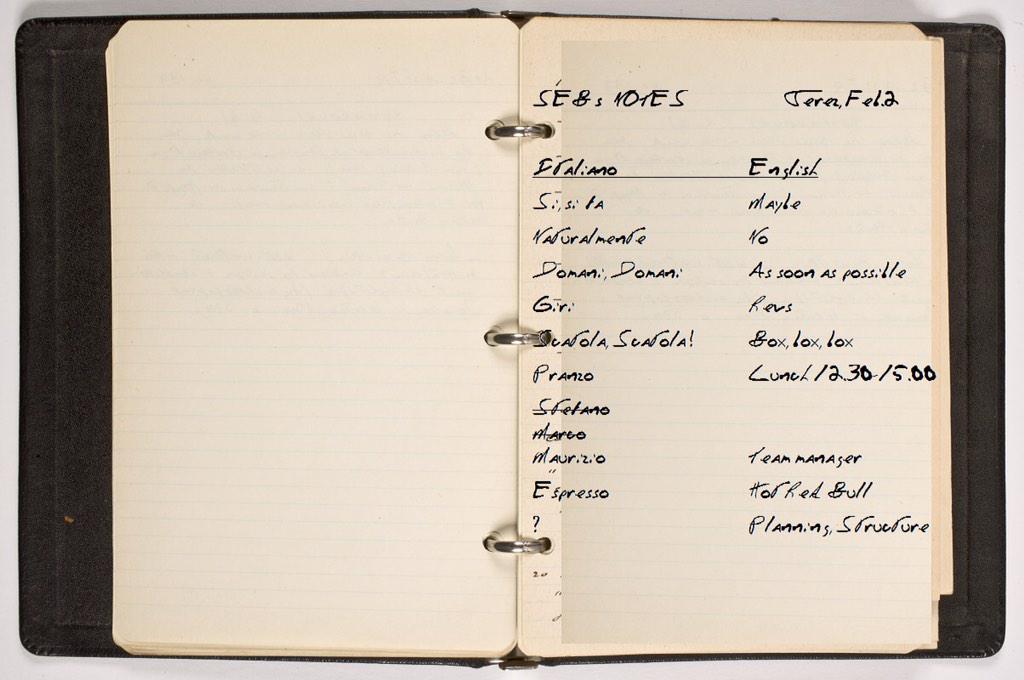 SEBs NOTES Jerez, Feb. 2
Italiano English
Si, si ta Maybe
Naturalmente No
Domani, Domani As soon as possible
Giri Revs
Scatola, Scatola! Box, box, box
Pranzo Lunch 12.30-15.00
Stefano
Marco
Maurizio Team manager
Espresso Hot Red Bull
? Planning, Structure
20